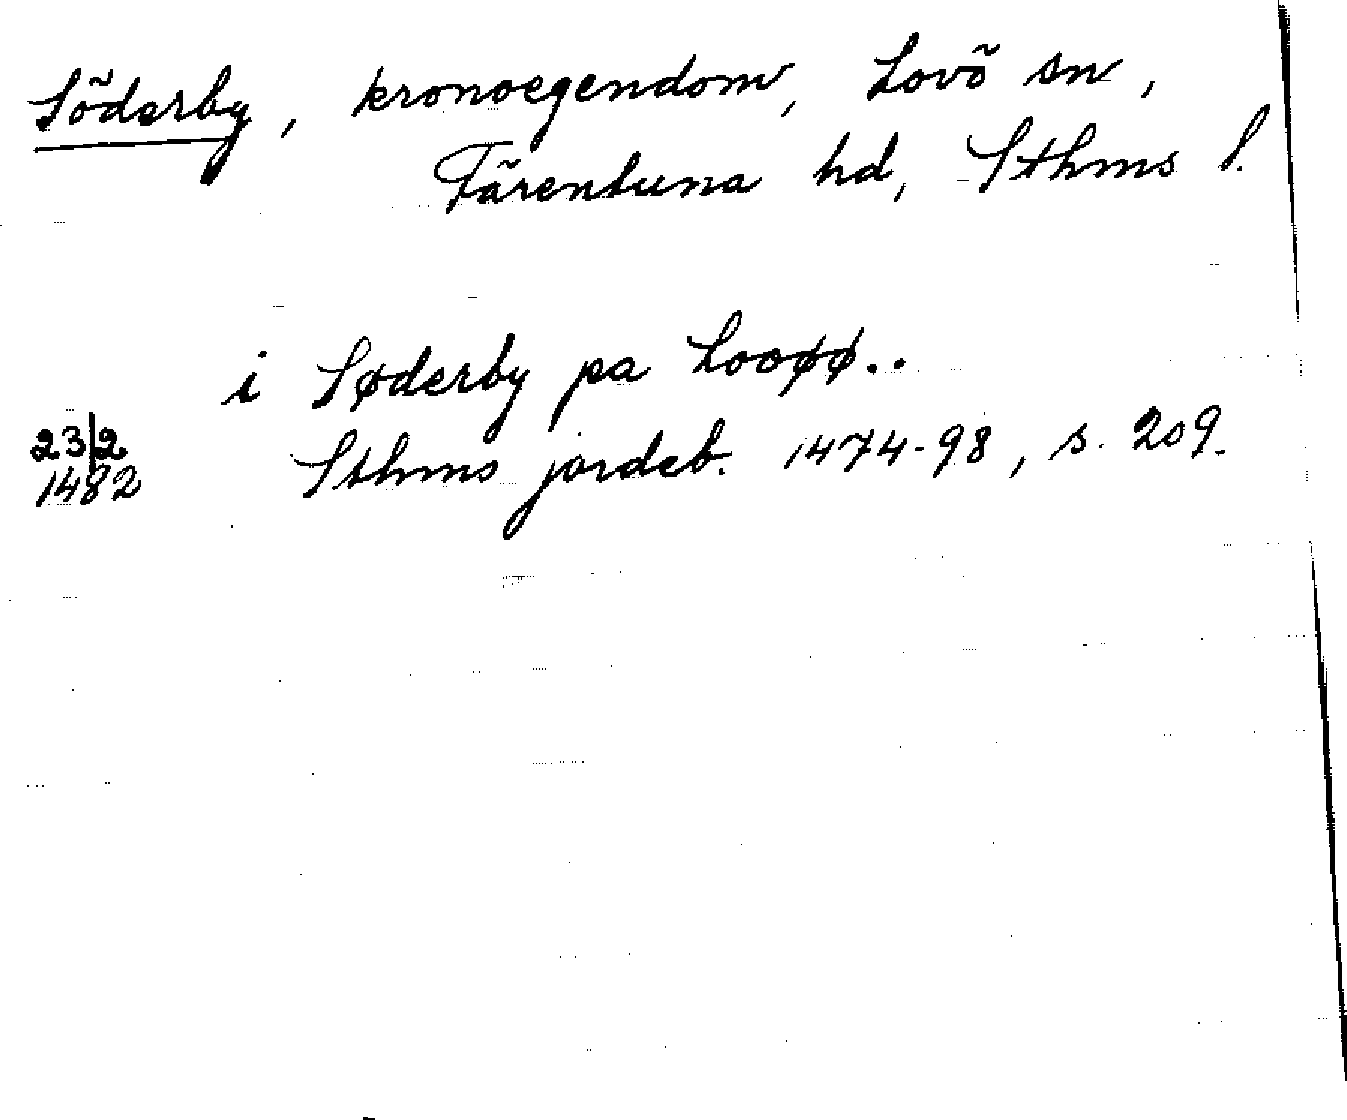 Söderby, kronoegendom, Lovö sn,
Färentuna hd, Sthms l.
i Søderby pa Looøø..
23/2
1482 Sthms jordeb. 1474-98, s. 209.